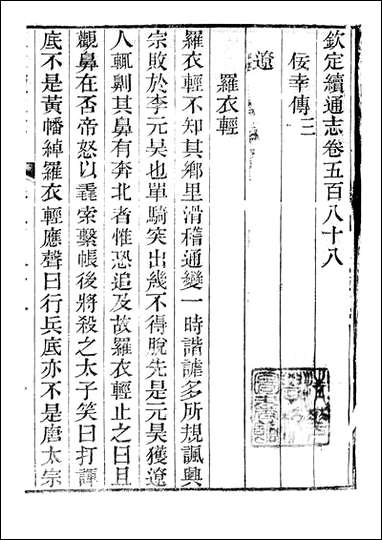 欽定續通志卷五百八十八
佞幸傳三
遼
羅衣輕
羅衣輕不知其鄉里滑稽通變一時諧謔多所規諷興
宗敗於李元昊也單騎突出幾不得脫先是元昊獲遼
人輒劓其鼻有奔北者惟恐追及故羅衣輕止之曰且
觀鼻在否帝怒以毳索繫帳後將殺之太子笑曰打諢
底不是黃幡綽羅衣輕應聲曰行兵底亦不是唐太宗